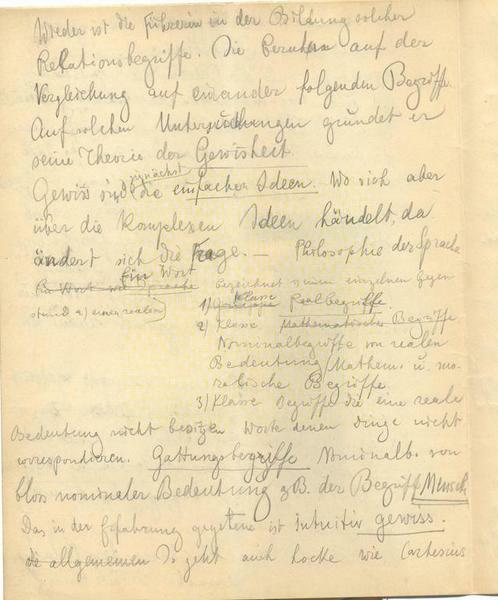 Wieder ist die Führerin in der Bildung solcher
Relationsbegriffe. Die beruhen auf der
Vergleichung auf einander folgenden Begriffe.
Auf solchen Untersuchungen gründet er
seine Theorie der Gewisheit.
zunächst
Gewiss sind die einfachen Ideen. Wo sich aber
über die komplexen Ideen handelt, da
ändert sich die Frage. — Philosophie der Sprache
Ein Wort
Ein Wort Sprache bezeichnet einen einzelnen gegen
stand a) einen realen
1) Klasse Realbegriffe
2) Klasse Mathematische Begriffe
Nominalbegriffe von realen
Bedeutung Mathem. u. mo-
ralische Begriffe.
3) Klasse Begriffe die eine reale
Bedeutung nicht besitzen Worte denen dinge nicht
correspondieren. Gattungsbegriffe Nominalb. von
blos nominaler Bedeutung zB. der Begriff Mensch
Das in der Erfahrung gegebene ist intuitiv gewiss.
die allgemeinen So geht auch Locke wie Cartesius